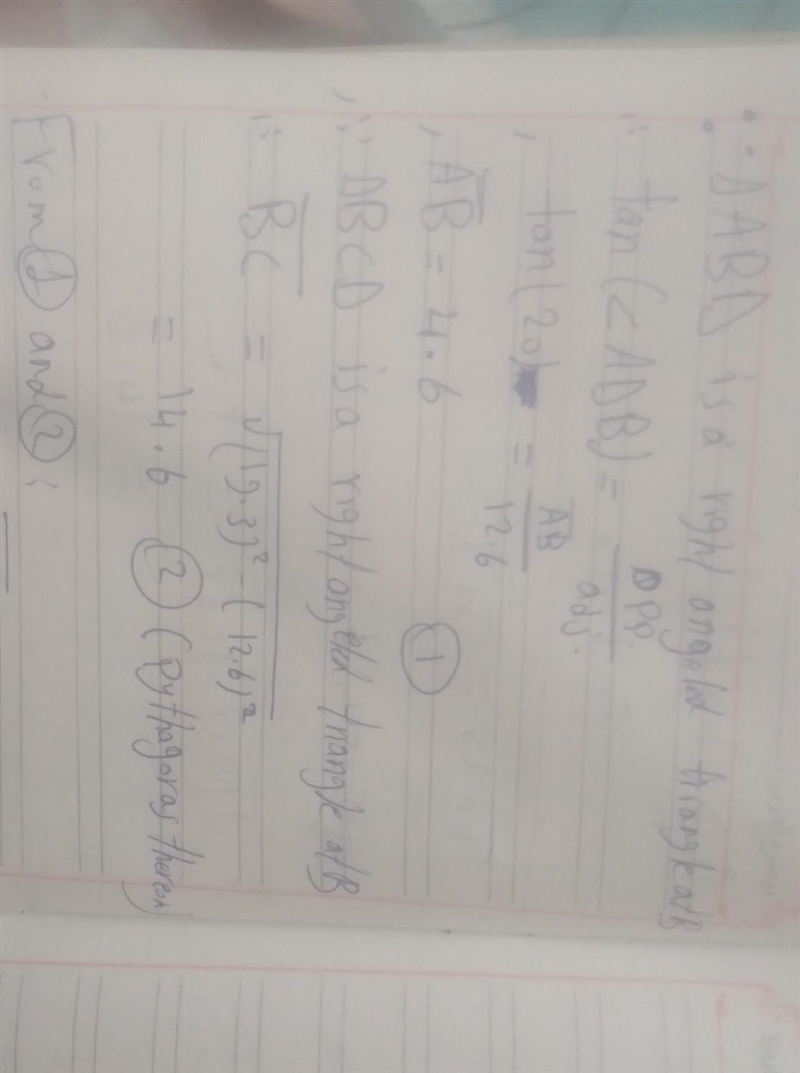 ∵ ΔABD is a right angeled triangle at B
∴ tan(<ADB) = opp. / adj.
, tan(20) = AB / 12.6
, AB = 4.6 ①
, ∵ ΔBCD is a right angeled triangle at B
∴ BC = √(19.3)² - (12.6)²
= 14.6 ② (Pythagoras
From ① and ② :